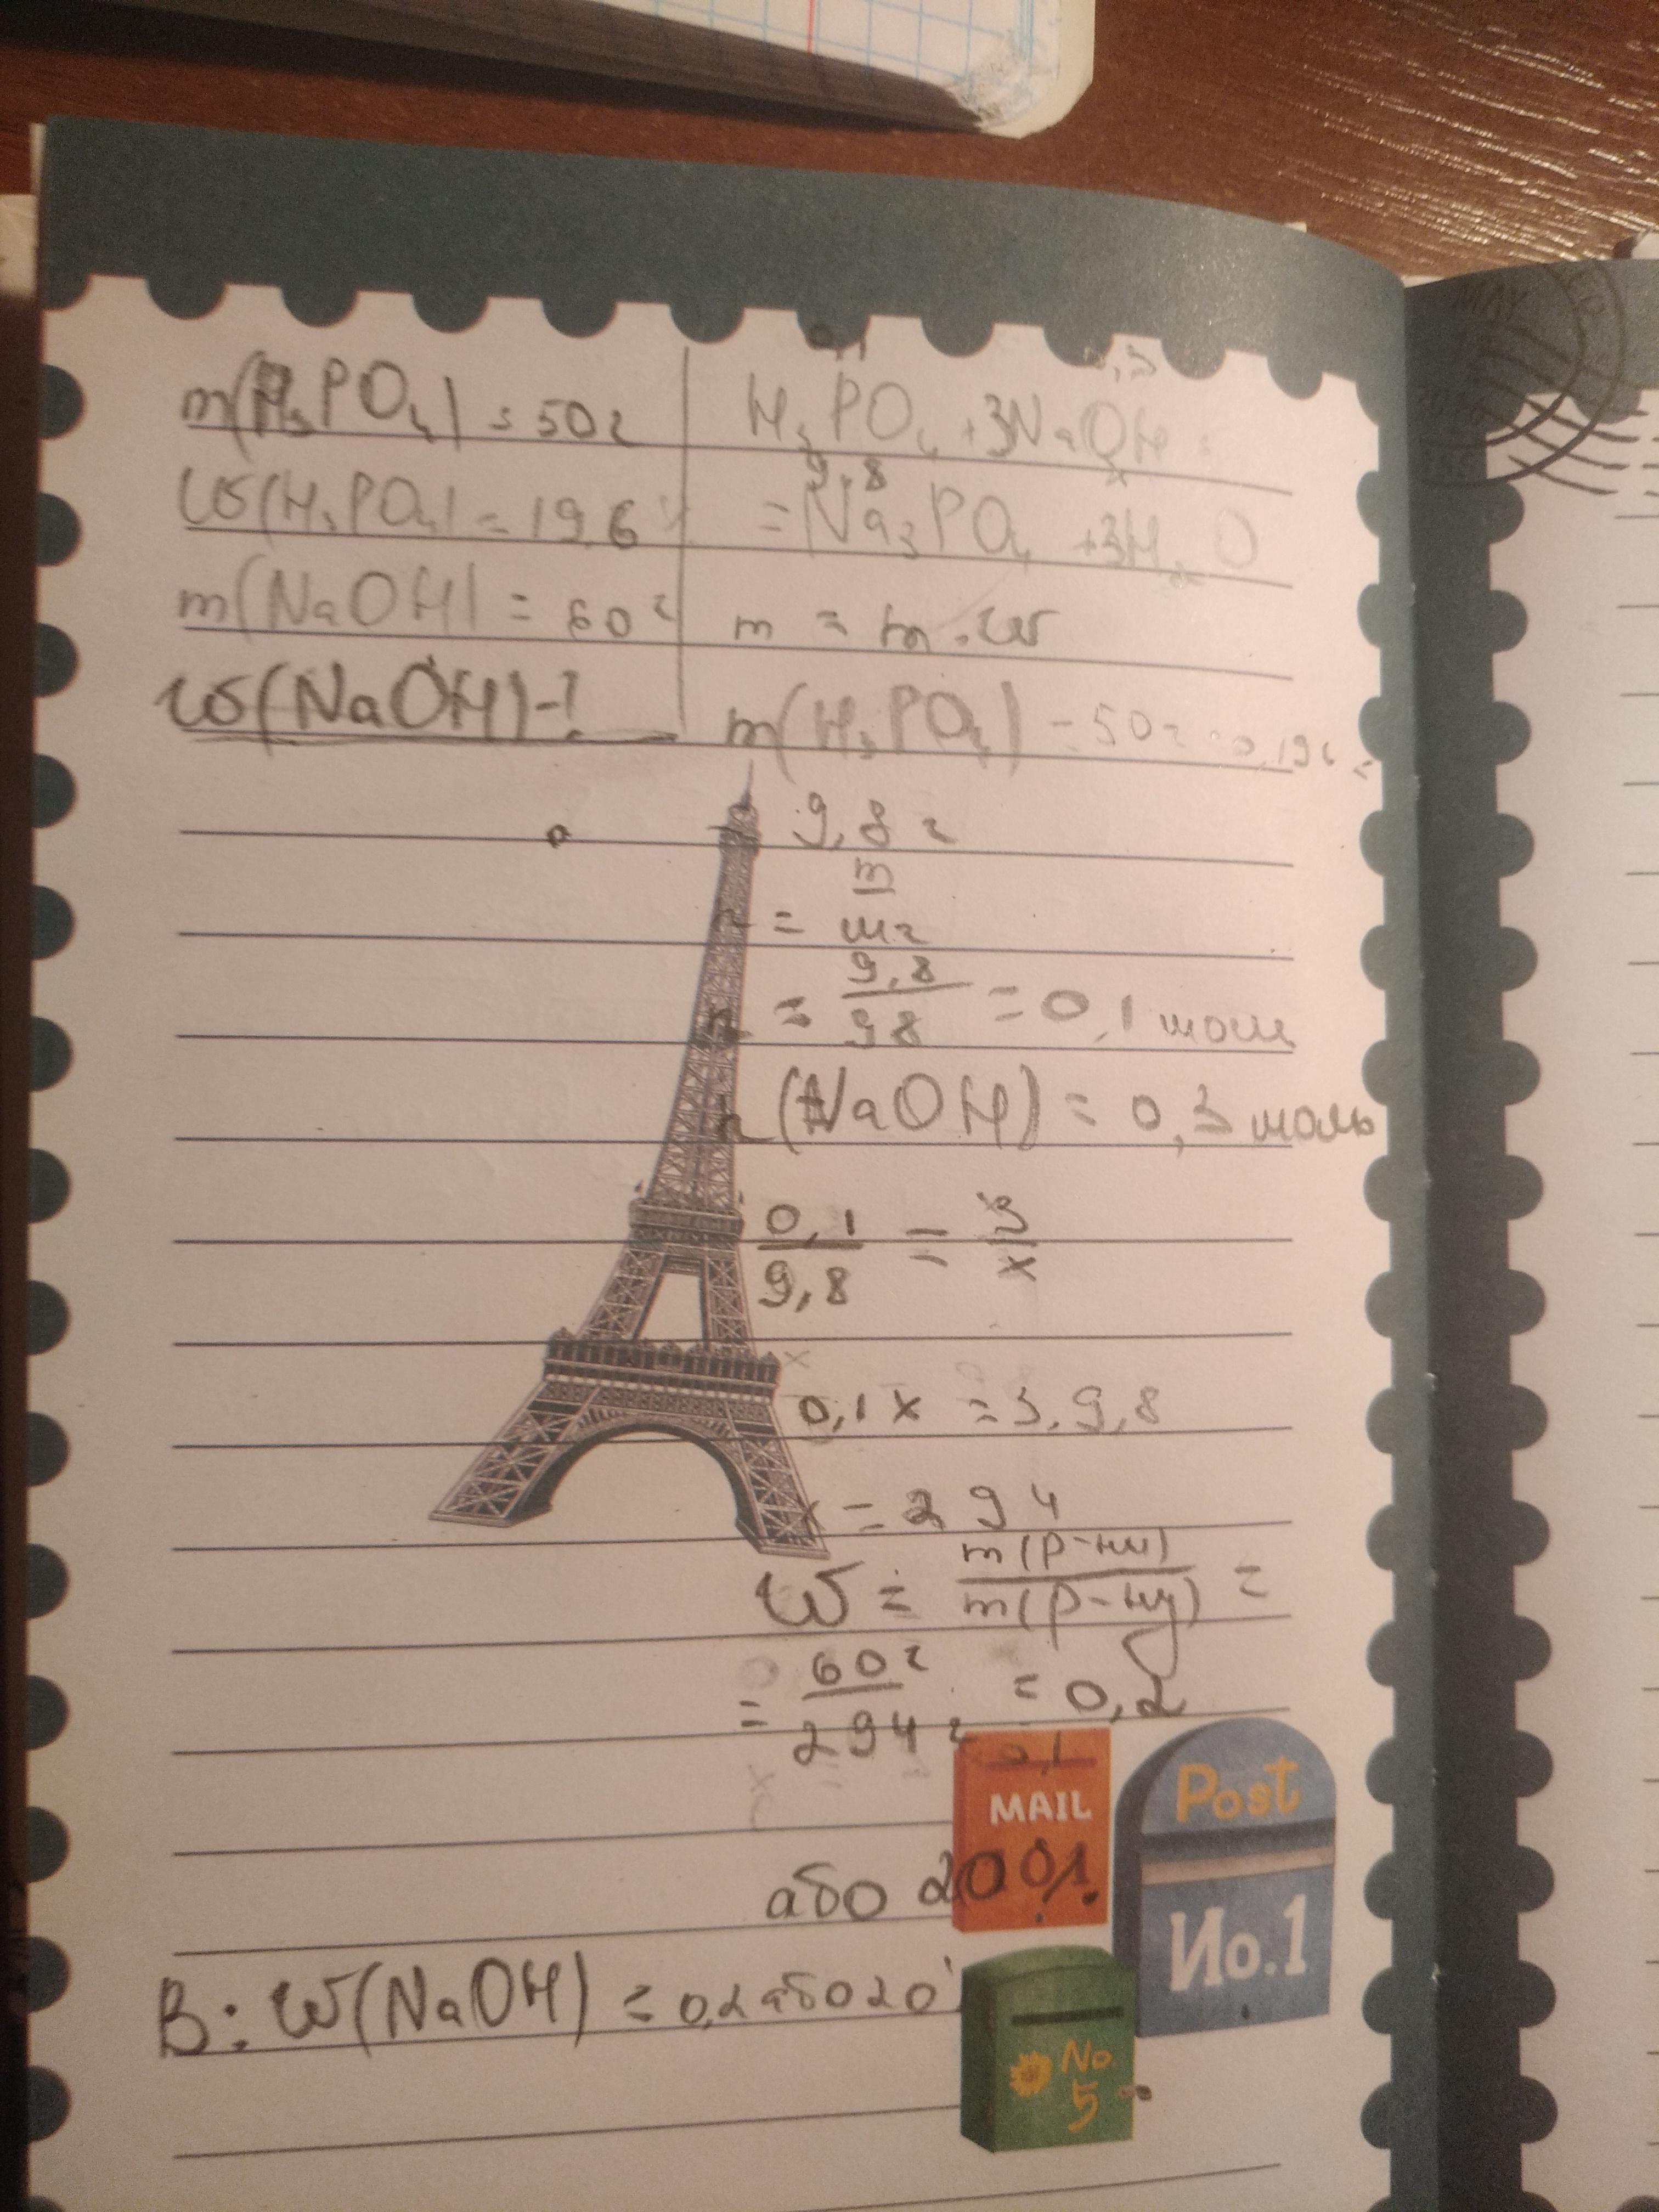 m(H₃PO₄) = 50г
ω(H₃PO₄) = 19,6%
m(NaOH) = 60г
ω(NaOH)-?
H₃PO₄ + 3NaOH =
9,8 x
= Na₃PO₄ + 3H₂O
m = m · ω
m(H₃PO₄) = 50г · 0,196 =
9,8 г
n = m/M
n = 9,8/98 = 0,1 моль
n(NaOH) = 0,3 моль
0,1/9,8 = 3/x
0,1x = 3 · 9,8
x = 294
ω = m(р-ни)/m(р-ну) =
= 60г/294г = 0,2
або 20%.
В: ω(NaOH) = 0,2 або 20
MAIL
Post
No.1
No
5
MAY